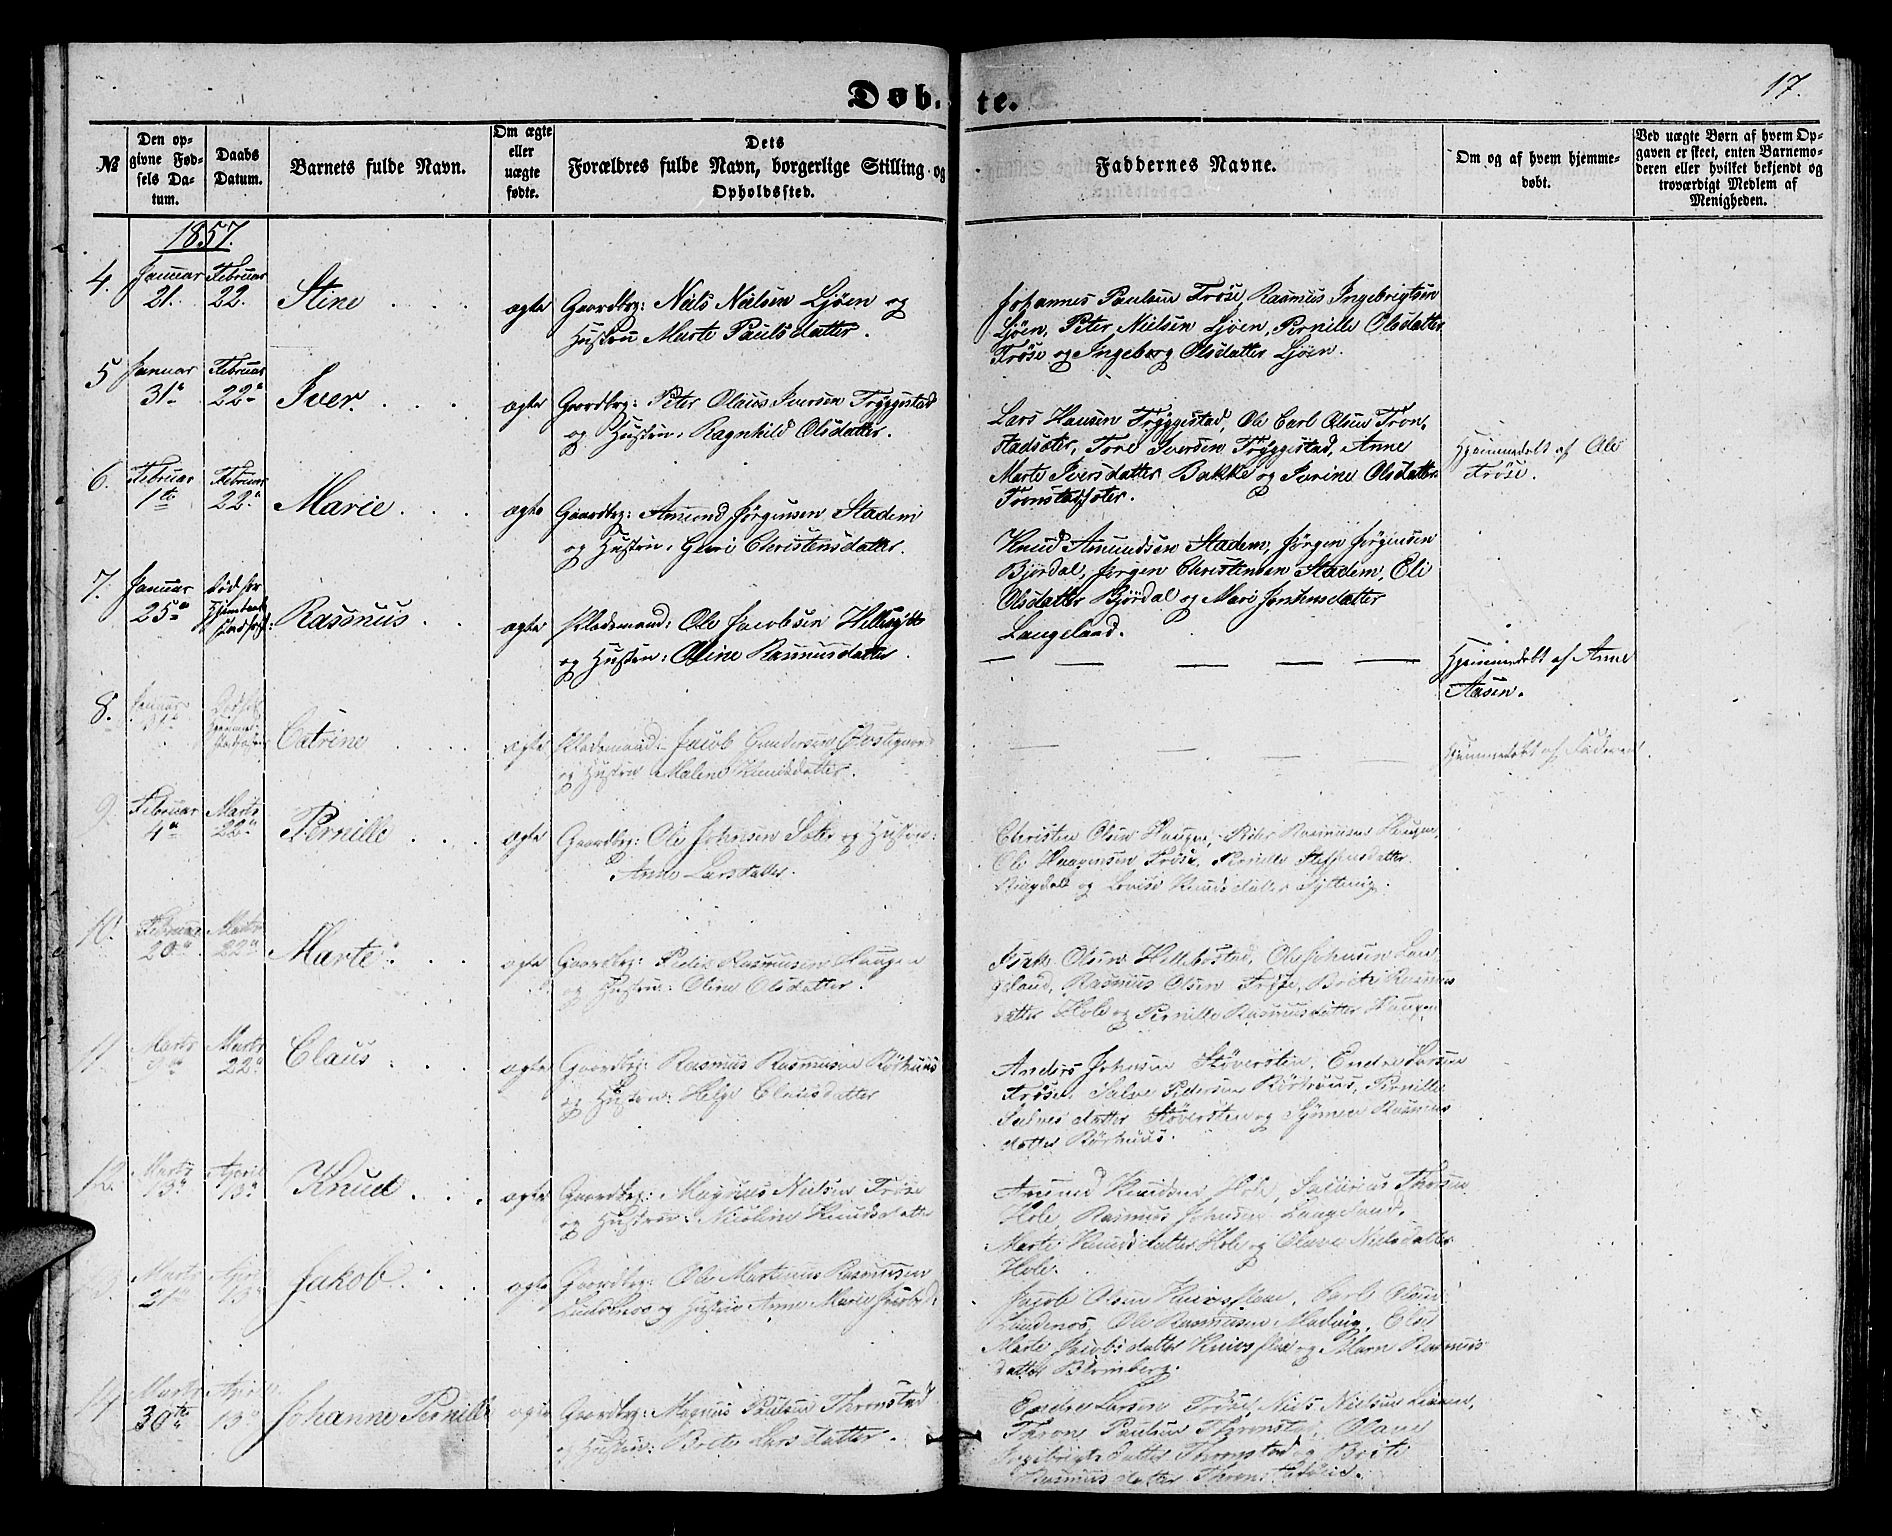 Døb-te.
17.
№
Den opgivne Fødsels Datum.
Daabs Datum.
Barnets fulde Navn.
Om ægte eller uægte fødte.
Dets Forældres fulde Navn, borgerlige Stilling og Opholdssted.
Faddernes Navne.
Om og af hvem hjemmedøbt.
Ved uægte Børn af hvem Opgaven er skeet, enten Barnemoderen eller hvilket bekjendt og troværdigt Medlem af Menigheden.
1857.
4. Januar 21. Februar 22. Stine ægte Gaardbrg: Niels Nielsen Ljøen og
Hustru Marte Paulsdatter.
Johannes Paulsen Frøse, Rasmus Ingebrigtsen
Ljøen, Peter Nielsen Ljøen, Pernille Olsdatter
Frøse og Ingeborg Olsdatter Ljøen.
5 Januar 31te Februar 22de Iver. ægte Gaardbrg: Peter Olaus Iversen Tryggestad
og Hustru: Ragnhild Olsdatter.
Lars Hansen Tryggestad, Ole Carl Olsen Tron-
stadsæter, Tore Iversen Tryggestad, Anne
Marte Iversdatter Bakke og Iverine Olsdatter
Tronstadsæter.
Hjemmedøbt af Ole
Frøse.
6. Februar 1te Februar 22de Marie. ægte Gaardbrg: Amund Jørgensen Stadem
og Hustru: Guri Christensdatter.
Knud Amundsen Stadem, Jørgen Jørgensen
Bjørdal, Jørgen Christensen Stadem, Eli
Olsdatter Bjørdal og Mari Jostensdatter
Langeland.
7. Januar 25de Død før Rasmus ægte Pladsmand: Ole Jacobsen
og Hustru: Oline Rasmusdatter.
Hjemmedøbt af Anne
Aasen.
8. Januar 31te Catrine ægte Pladsmand: Jacob Gundersen
og Hustru Malene Knudsdatter.
Hjemmedøbt af Faderen.
9. Februar 4de Marts 22de Pernille ægte Gaardbrg: Ole Johnsen Sæter og Hustru:
Anne Larsdatter.
Christen Olsen Haugen, Peder Rasmusen Haugen
Ole Haagensen Frøse, Pernille Steffensdatter
Ringdal og Lovise Knudsdatter
10. Februar 20de Marts 22de Marte. ægte Gaardbrg: Peder Rasmusen Haugen
og Hustru: Oline Olsdatter.
Isak Olsen Hellebostad, Ole Johnsen Lan-
geland, Rasmus Olsen Frøse, Brite Rasmus
datter Hole og Pernille Rasmusdatter Haugen
11. Marts Marts 22de Claus. ægte Gaardbrg: Rasmus Rasmusen Rørhuus
og Hustru: Helge Clausdatter
Anders Johnsen Støversten, Endre Larsen
Frøse, Salve Pedersen Rørhuus, Pernille
datter Støversten og Rasmus
datter Rørhuus.
12. Marts 13de April 13de Knud ægte Gaardbrg: Magnus Nielsen Frøse
og Hustru: Nicoline Knudsdatter
Amund Knudsen Hole, Thosen
Hole, Rasmus Johnsen Langeland,
Marte Knudsdatter Hole og Olave Nielsdatter
Hole.
Marts 21de April 13de Jakob. ægte Gaardbrg: Ole Martinus Rasmusen
Lundenes og Hustru Anne Marie
Jacob Olsen Knivsflaae, Carl Olsen
Lundenes, Ole Rasmusen
Marte Jacobsdatter Knivsflaae og Maren Rasmus
datter Blomberg.
14 Marts 30te April 13de Johanne Pernille ægte Gaardbrg: Magnus Paulsen Thronstad
og Hustru: Brite Larsdatter.
Endre Larsen Frøse, Niels Nielsen
Throne Paulsen Thronstad, Olave
Ingebrigtsdatter Thronstad og Brite
Rasmusdatter